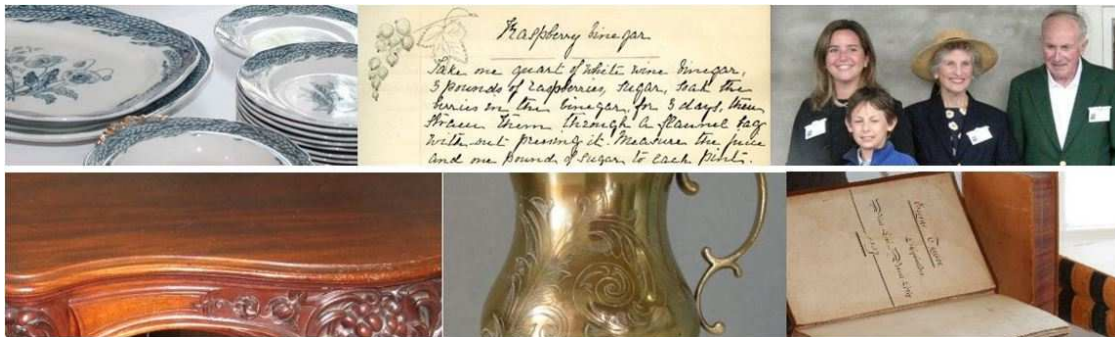 Raspberry Vinegar
Take one quart of white wine vinegar,
3 pounds of raspberries, sugar, soak the
berries in the vinegar, for 3 days, then
strain them through a flannel bag
with out pressing it. Measure the juice
and one pound of sugar to each pint.